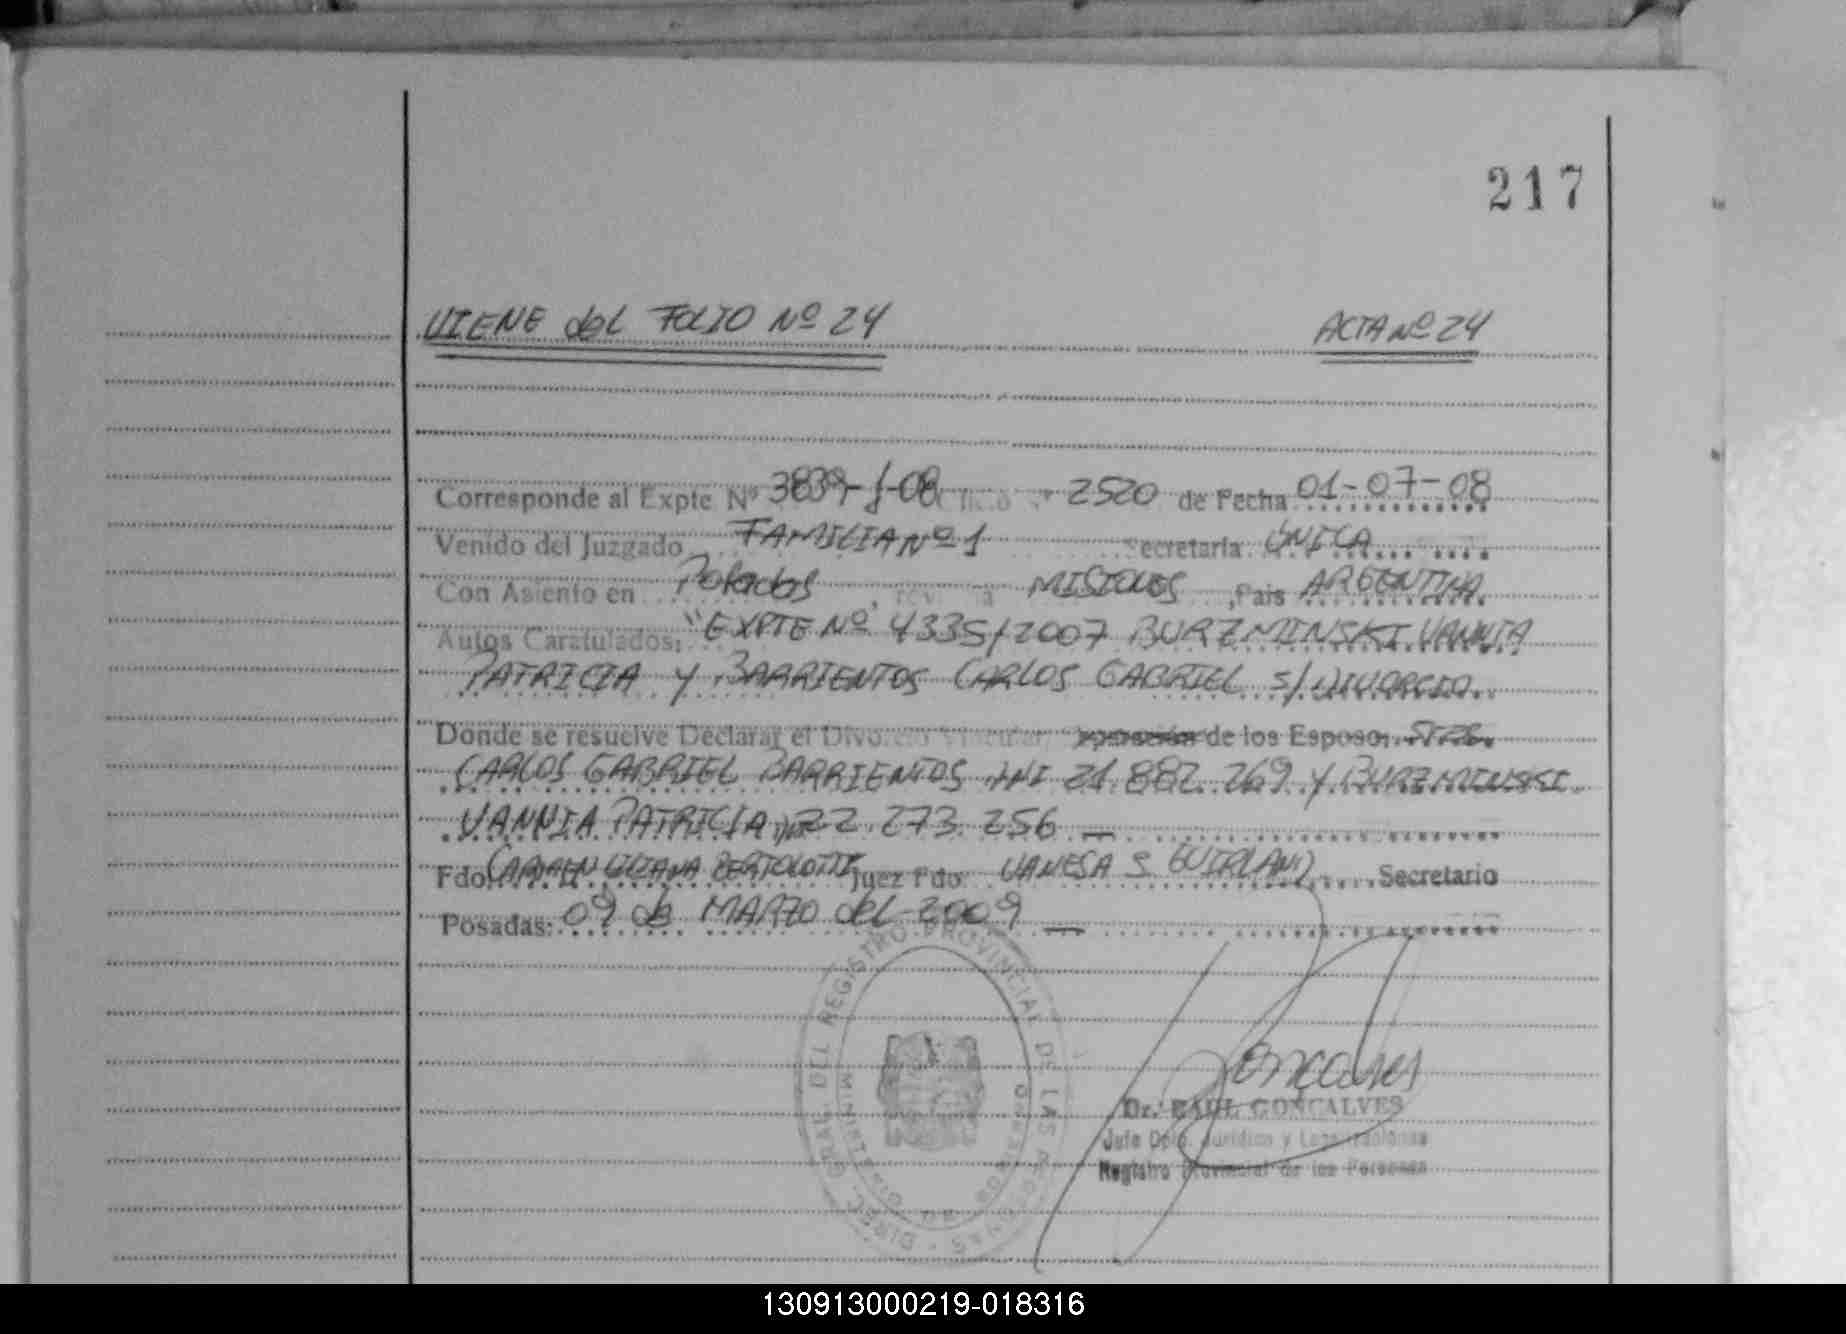 217
VIENE del FOLIO Nº 24 ACTA Nº 24
Corresponde al Expte Nº 3839-J-08 Nº 2520 de Fecha 01-07-08
Venido del Juzgado FAMILIA Nº 1 Secretaria ÚNICA
Con Asiento en Posadas, MISIONES, Pais ARGENTINA
Autos Caratulados: "EXPTE Nº 4335/2007 BURZMINSKI VANNIA
PATRICIA Y BARRIENTOS CARLOS GABRIEL S/ DIVORCIO.
Donde se resuelve Declarar el Divorcio Vincular de los Esposos
CARLOS GABRIEL BARRIENTOS DNI 21.882.269 Y BURZMINSKI
VANNIA PATRICIA, DNI 22.273.256
Fdo. CARMEN LILIANA BERTOLOTTI Juez Fdo. VANESA S Secretario
Posadas: 09 de MARZO del 2009
DIREC. GRAL. DEL REGISTRO PROVINCIAL DE LAS PERSONAS
MINISTERIO DE GOBIERNO
Goncalves
Dr. RAUL GONCALVES
Jefe Dpto. Jurídico y Legalizaciones
Registro Provincial de las Personas
130913000219-018316